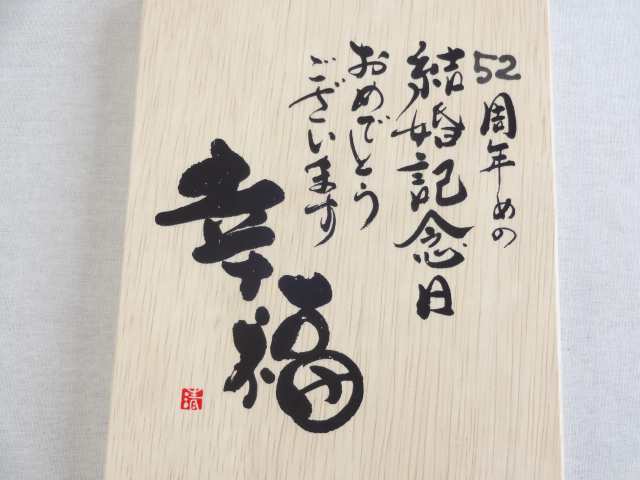 52周年めの
結婚記念日
おめでとう
ございます
幸福
清